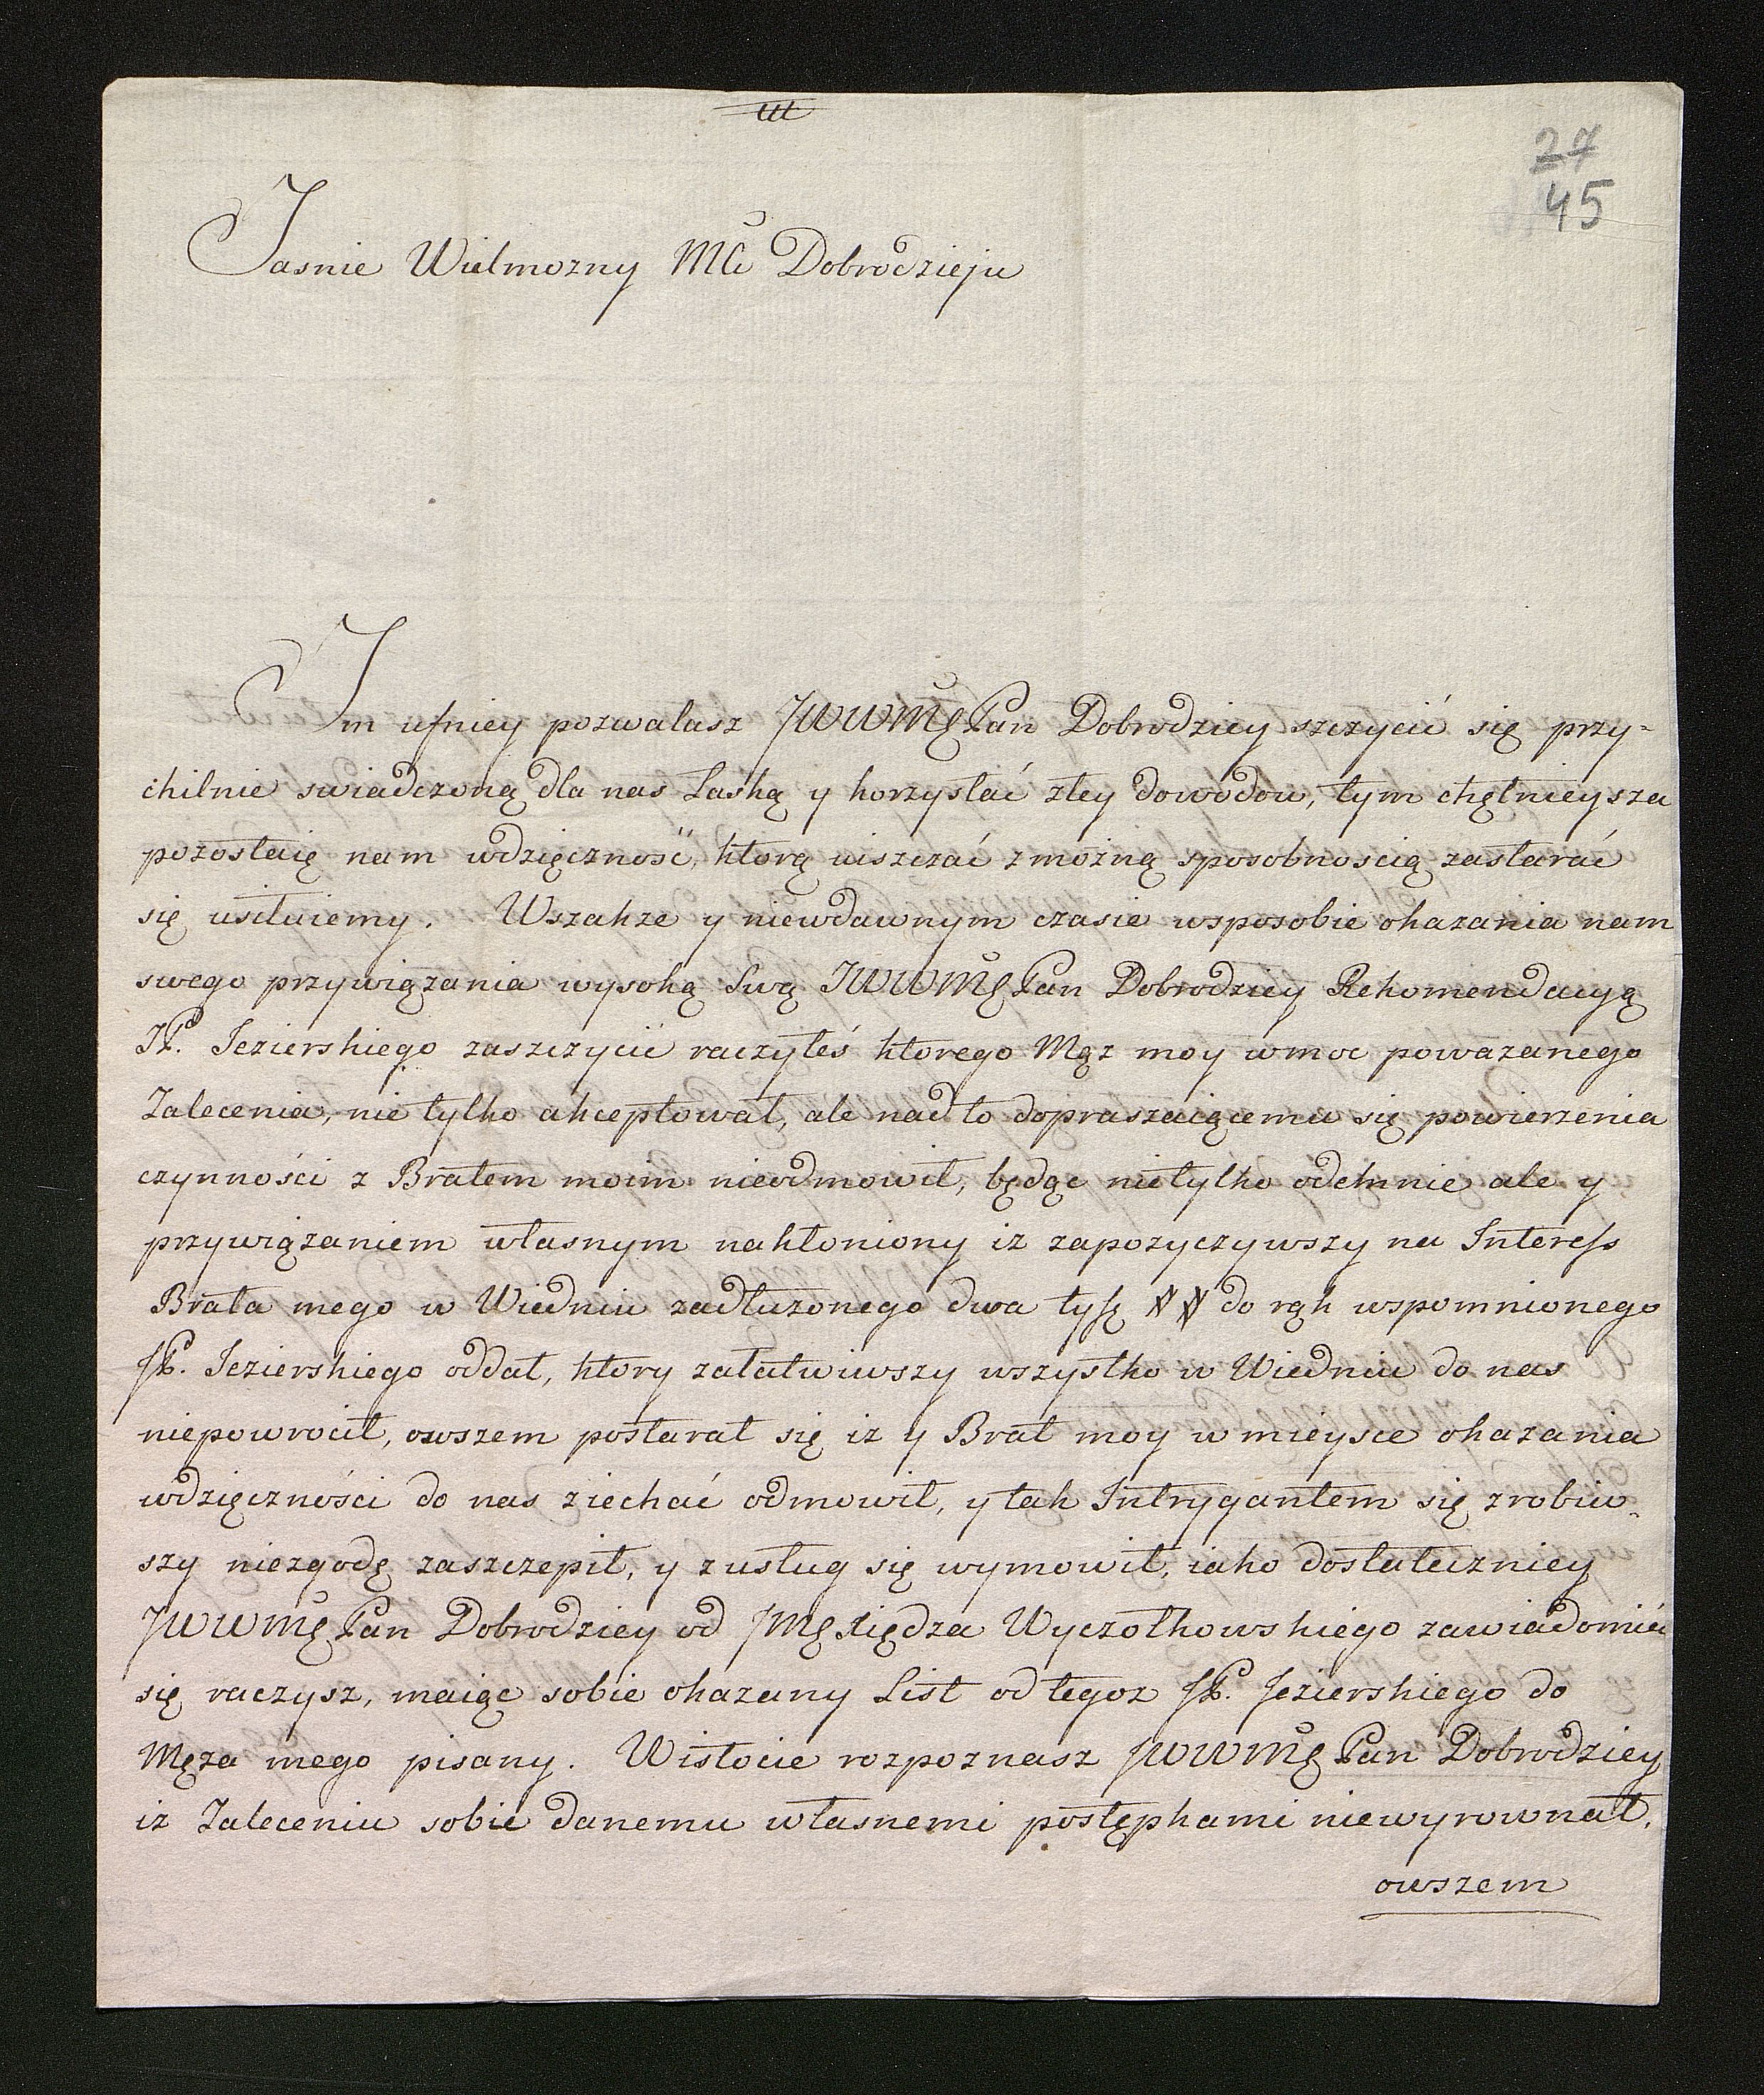 27
45
Jasnie Wielmozny Mći Dobrodzieju
Im ufniey pozwalasz JWWMę Pan Dobrodziey szczycić się przy-
chilnie swiadczoną dla nas Łaską y korzystać ztey dowodow, tym chętnieysza
pozostaię nam wdzięczność, ktorą uiszczać zmożną sposobnoscią zastarać
się usiłuiemy. Wszakze y niewdawnym czasie wsposobie okazania nam
swego przywiązania wysoką Swą JWWMę Pan Dobrodziey Rekomendacyą
JP. Jezierskiego zaszczycić raczyłeś ktorego Mąz moy wmoc powazanego
Zalecenia, nie tylko akceptował, ale nadto dopraszaiącemu się powierzenia
czynności z Bratem moim nieodmowił, będąc nietylko odemnie ale y
przywiązaniem własnym nakłoniony iz zapozyczywszy na Interess
Brata mego w Wiedniu zadłuzonego dwa tysę ## do rąk wspomnionego
JP. Jezierskiego oddał, ktory załatwiwszy wszystko w Wiedniu do nas
niepowrocił, owszem postarał się iz y Brat moy w mieysce okazania
wdzięczności do nas ziechać odmowił, y tak Intrygantem się zrobiw-
szy niezgodę zaszczepił, y z usług się wymowił, iako dostateczniey
JWWMę Pan Dobrodziey od JMę Xiędza Wyczołkowskiego zawiadomić
się raczysz, maiąc sobie okazany List od tegoz JP. Jezierskiego do
Męza mego pisany. Wistocie rozpoznasz JWWMę Pan Dobrodziey
iz Zaleceniu sobie danemu własnemi postępkami niewyrownał.
owszem